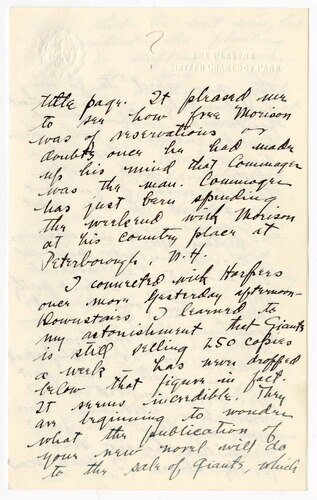 ?
THE PLAYERS
SIXTEEN GRAMERCY PARK
title page. It pleased me
to see how free Morison
was of reservations or
doubts once he had made
up his mind that Commager
was the man. Commager
has just been spending
the weekend with Morison
at his country place at
Peterborough, N.H.
I connected with Harpers
once more yesterday afternoon.
Downstairs I learned to
my astonishment that Giants
is still selling 250 copies
a week - has never dropped
below that figure in fact.
It seems incredible. They
are beginning to wonder
what the publication of
your new novel will do
to the sale of Giants, which